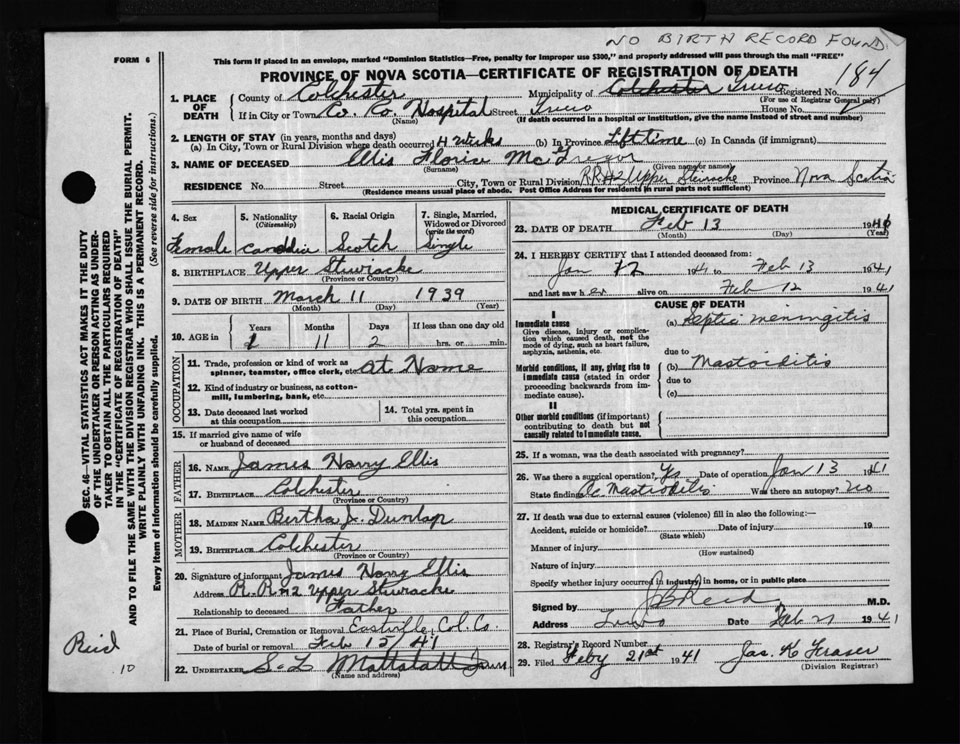 NO BIRTH RECORD FOUND
FORM 6
This form if placed in an envelope, marked "Dominion Statistics—Free, penalty for improper use $300," and properly addressed will pass through the mail "FREE"
PROVINCE OF NOVA SCOTIA—CERTIFICATE OF REGISTRATION OF DEATH
184
1. PLACE OF DEATH
County of Colchester Municipality of Colchester Truro Registered No.
(For use of Registrar General only)
If in City or Town Co. Co. Hospital Street Truro House No.
(Name) (If death occurred in a hospital or institution, give the name instead of street and number)
2. LENGTH OF STAY (in years, months and days)
(a) In City, Town or Rural Division where death occurred 4 weeks (b) In Province Lifttime (c) In Canada (if immigrant)
3. NAME OF DECEASED Ellis Florice McGregor
(Surname) (Given name or names)
RESIDENCE No. Street City, Town or Rural Division R.R.#2 Upper Stewiacke Province Nova Scotia
(Residence means usual place of abode. Post Office Address for residents in rural parts not sufficient)
4. Sex
Female
5. Nationality
(Citizenship)
6. Racial Origin
Scotch
7. Single, Married, Widowed or Divorced
(write the word)
Single
8. BIRTHPLACE Upper Stewiacke
(Province or Country)
9. DATE OF BIRTH March 11 1939
(Month) (Day) (Year)
10. AGE in
Years Months Days If less than one day old
1 11 2 hrs. or min.
OCCUPATION
11. Trade, profession or kind of work as spinner, teamster, office clerk, etc. at Home
12. Kind of industry or business, as cotton-mill, lumbering, bank, etc.
13. Date deceased last worked at this occupation
14. Total yrs. spent in this occupation
15. If married give name of wife or husband of deceased
FATHER
16. NAME James Harry Ellis
17. BIRTHPLACE Colchester
(Province or Country)
MOTHER
18. MAIDEN NAME Bertha J. Dunlap
19. BIRTHPLACE Colchester
(Province or Country)
20. Signature of informant James Harry Ellis
Address R.R #2 Upper Stewiacke
Relationship to deceased Father
21. Place of Burial, Cremation or Removal Eastville, Col. Co.
Date of burial or removal Feb 15/41
22. UNDERTAKER S. L. Mattatall
(Name and address)
MEDICAL CERTIFICATE OF DEATH
23. DATE OF DEATH Feb 13 1941
(Month) (Day) (Year)
24. I HEREBY CERTIFY that I attended deceased from:
Jan 12 1941 to Feb 13 1941
and last saw her alive on Feb 12 1941
CAUSE OF DEATH
I
Immediate cause
Give disease, injury or complication which caused death, not the mode of dying, such as heart failure, asphyxia, asthenia, etc.
(a) Septic meningitis
due to
Morbid conditions, if any, giving rise to immediate cause (stated in order proceeding backwards from immediate cause).
(b) Mastoiditis
due to
(c)
II
Other morbid conditions (if important) contributing to death but not causally related to immediate cause.
25. If a woman, was the death associated with pregnancy?
26. Was there a surgical operation? Ys Date of operation Jan 13 1941
State findings Ac Mastoiditis Was there an autopsy? No
27. If death was due to external causes (violence) fill in also the following:—
Accident, suicide or homicide? Date of injury 19
(State which)
Manner of injury
(How sustained)
Nature of injury
Specify whether injury occurred in industry, in home, or in public place
Signed by J B Reid M.D.
Address Truro Date Feb 21 1941
28. Registrar's Record Number
29. Filed Feby 21st 1941 Jas. K Fraser
(Division Registrar)
SEC. 46—VITAL STATISTICS ACT MAKES IT THE DUTY
OF THE UNDERTAKER OR PERSON ACTING AS UNDERTAKER TO OBTAIN ALL THE PARTICULARS REQUIRED
IN THE "CERTIFICATE OF REGISTRATION OF DEATH"
AND TO FILE THE SAME WITH THE DIVISION REGISTRAR WHO SHALL ISSUE THE BURIAL PERMIT.
WRITE PLAINLY WITH UNFADING INK. THIS IS A PERMANENT RECORD.
Every item of information should be carefully supplied. (See reverse side for instructions.)
Reid
10